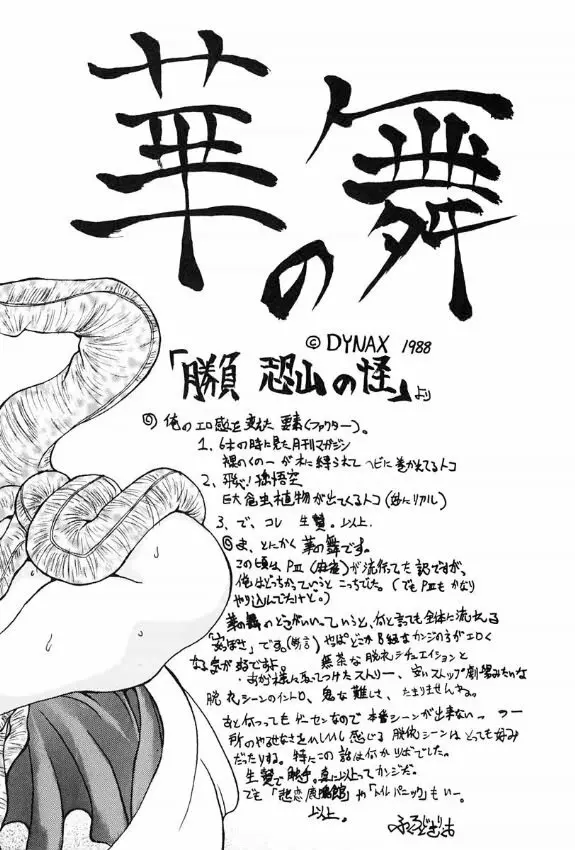 華の舞
© DYNAX 1988
「勝負 恐山の怪」より
◎ 俺のエロ感を変えた要素(ファクター)。
1. 6才の時に見た月刊マガジン
裸のくの一が木に縛られてヘビに巻かれてるトコ
2. 飛べ!孫悟空
巨大食虫植物が出てくるトコ(妙にリアル)
3. で、コレ 生贄。以上。
◎ま、とにかく 華の舞です。
この頃は PⅢ(麻雀)が流行ってた訳ですが、
俺はどっちかっていうとこっちでした。(でもPⅢもかなり
やり込んでたけど。)
華の舞のどこがいいっていうと、何と言っても全体に流れる
です。(断言) やっぱどこかB級なカンジの方がエロく
なる気が 無茶な脱衣シチュエイションと
ストリー、安いストリップ劇場みたいな
脱衣シーンのイントロ、鬼な難しさ、たまりませんなぁ。
あと何つってもゲーセンなので本番シーンが出来ないっつー
所のやるせなさをひしひし感じる脱衣シーンはとっても好み
だったりする。特にこの話は何かりばでした。
生贄で触手。 以上ってカンジだ。
でも「 館」や「 パニック」もいー。
以上。